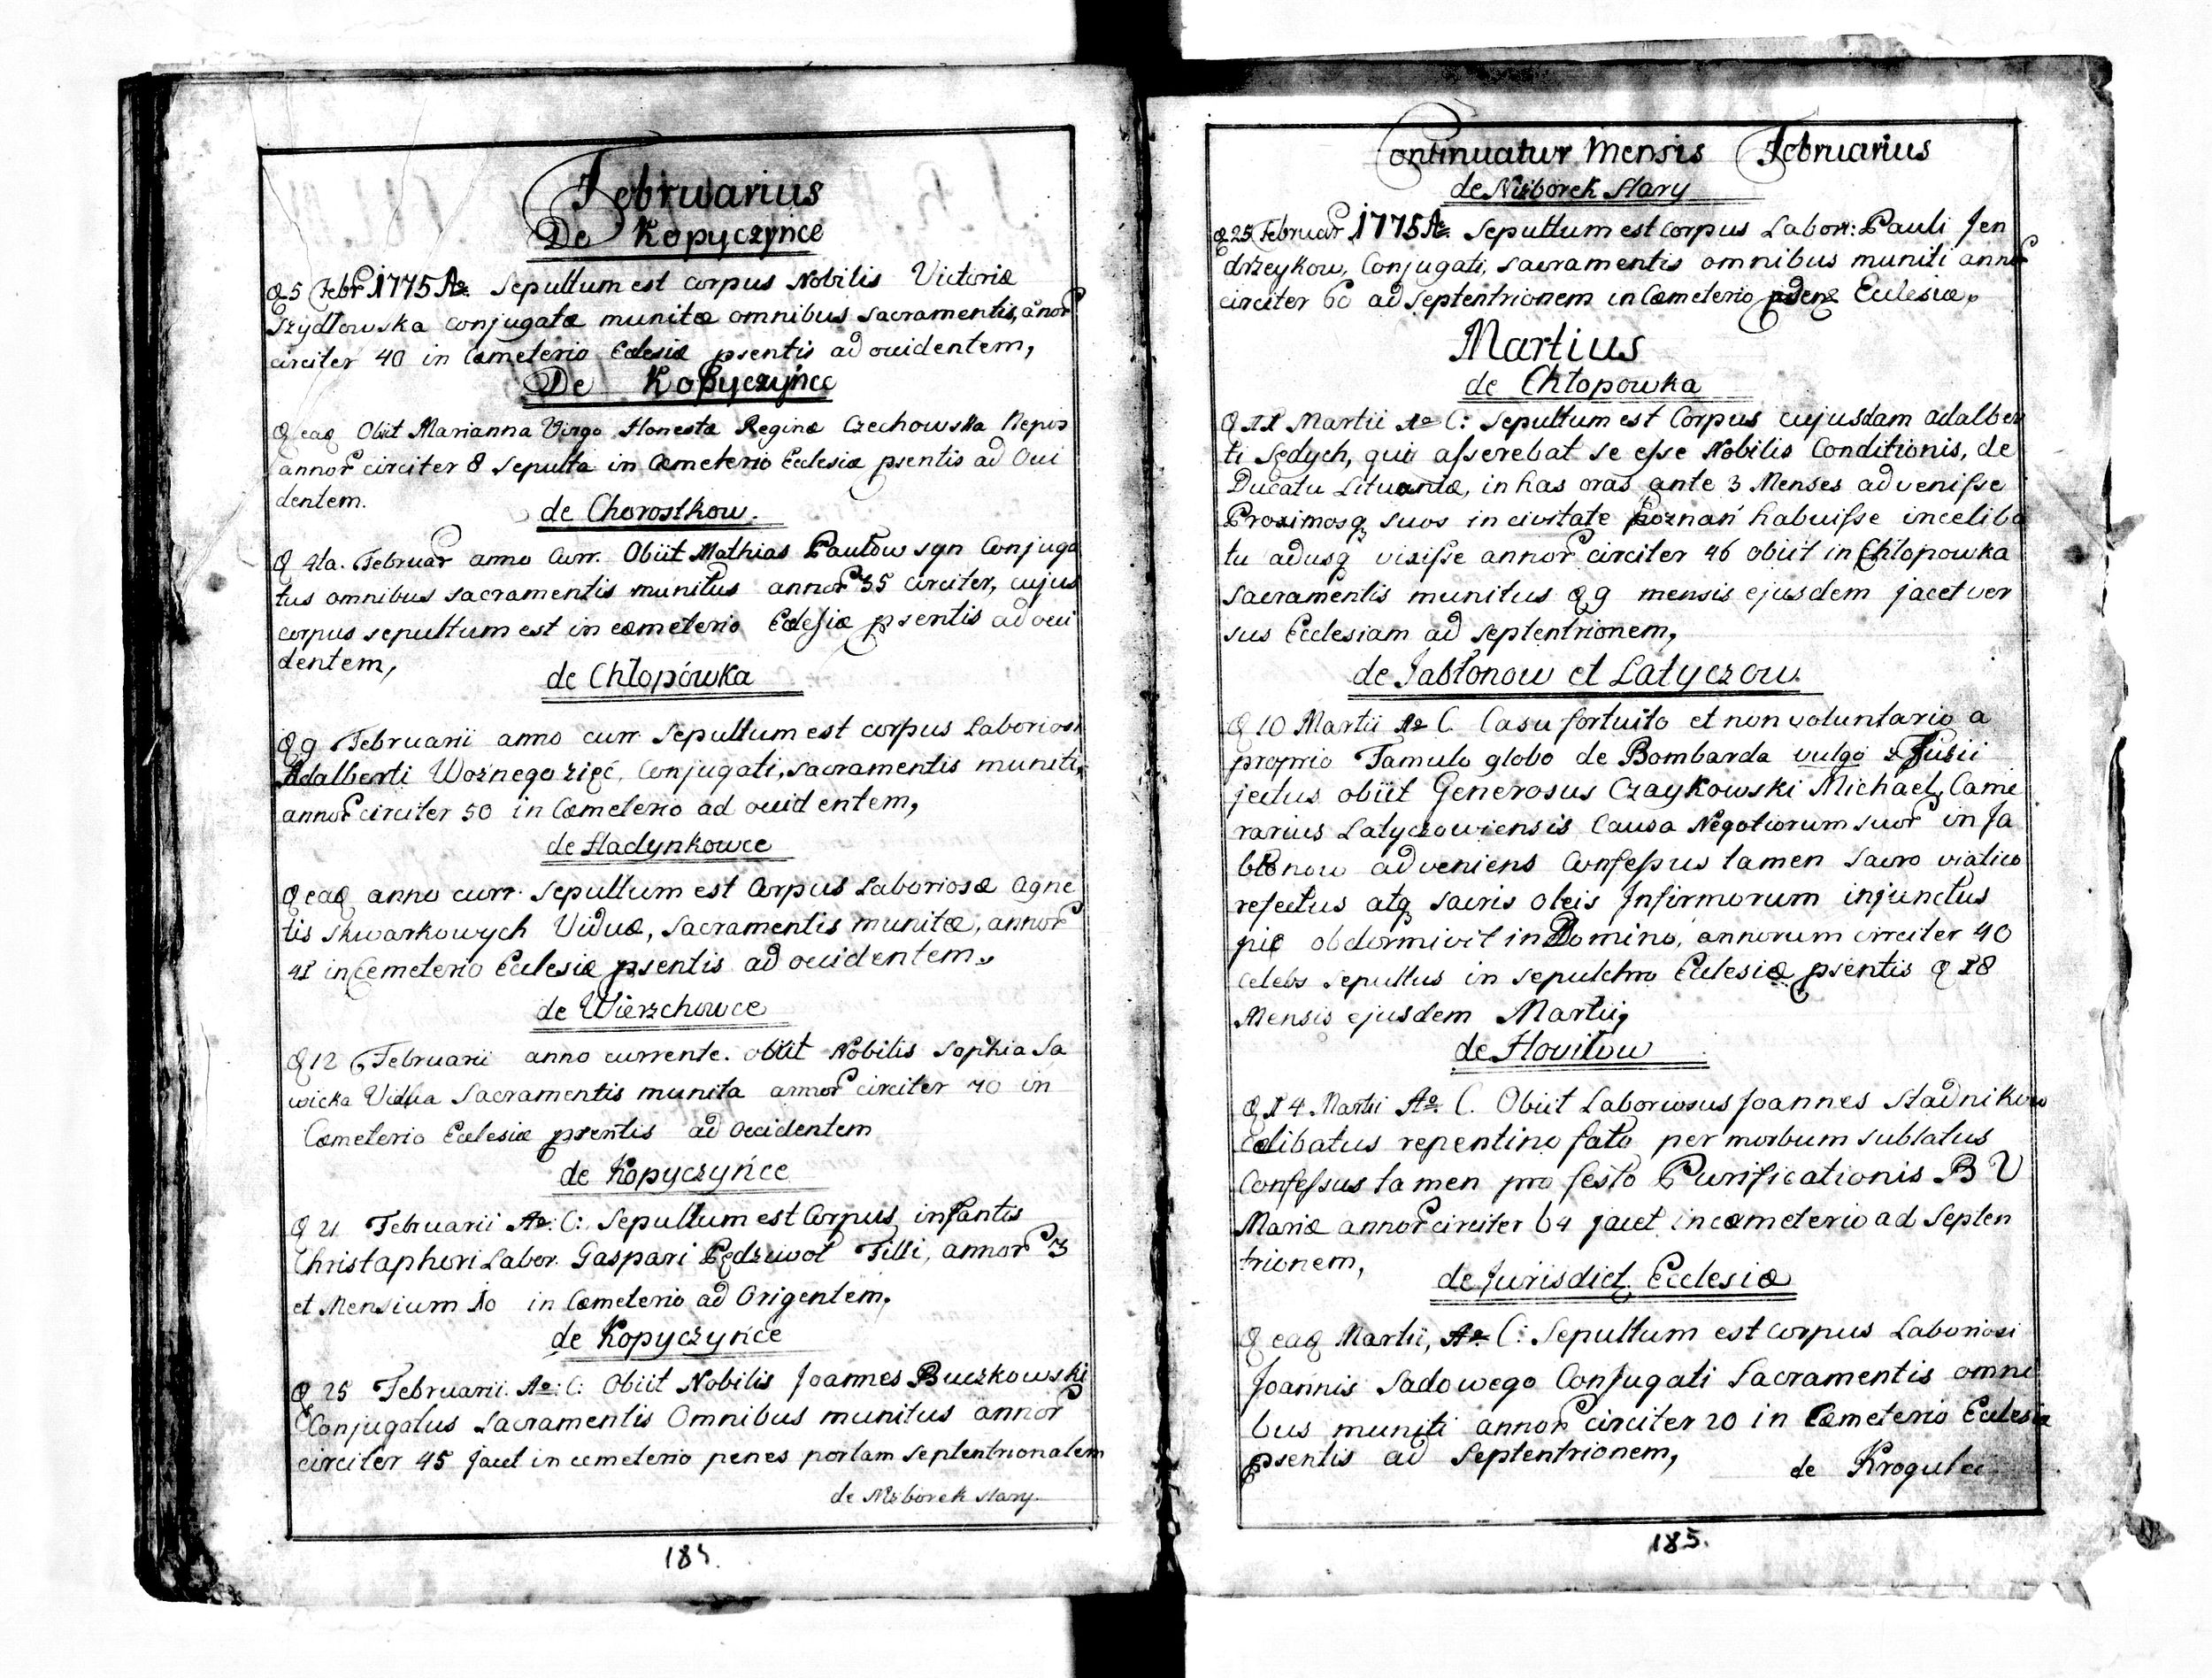 Februarius
De Kopyczyńce
D 5 Febr 1775 Ao. Sepultum est corpus Nobilis Victoriæ
Szydłowska conjugatæ munitæ omnibus sacramentis, anor
circiter 40 in Cæmeterio Eclesiæ psentis ad ouidentem,
De Kopyczyńce
D eaD Obiit Marianna Virgo Honestæ Reginæ Czechowska Nepis
annor circiter 8 Sepulta in Cæmeterio Ecclesiæ psentis ad Oui
dentem.
de Chorostkow.
D 4ta. Februar anno Curr. Obiit Mathias Pautow syn Conjuga
tus omnibus sacramentis munitus annor 35 circiter, cujus
corpus sepultum est in cæmeterio Eclesiæ psentis ad oui
dentem,
de Chłopówka
D 9 Februarii anno curr. Sepultum est corpus Laboriosi
Adalberti Woznego zięć, Conjugati, sacramentis muniti,
annor circiter 50 in Cæmeterio ad ouidentem,
de Hadynkowce
D eaD anno curr. Sepultum est Corpus Laboriosæ Agne
tis Skwarkowych Viduæ, Sacramentis munitæ, annor
41 in Cemeterio Eclesiæ psentis ad ouidentem,
de Wierzchowce
D 12 Februarii anno currente. obiit Nobilis Sophia Sa
wicka Vidua Sacramentis munita annor circiter 70 in
Cæmeterio Eclesiæ psentis ad Occidentem
de Kopyczyńce
D 21 Februarii Ao: C: Sepultum est Corpus infantis
Christaphori Labor. Gaspari Pędziwoł Filli, annor 3
et Mensium 10 in Cæmeterio ad Origentem,
de Kopyczyńce
D 25 Februarii. Ao: C: Obiit Nobilis Joannes Buczkowski
Conjugatus Sacramentis Omnibus munitus annor
circiter 45 Jacet in cemeterio penes portam Septentrionalem
de Niżborek Stary.
184.
Continuatur Mensis Februarius
de Niżborek Stary
D 25 Februar 1775 Ao. Sepultum est Corpus Labor: Pauli Jen
drzeykow, Conjugati, sacramentis omnibus muniti annor
circiter 60 ad Septentrionem in Cæmeterio Ecclesiæ,
Martius
de Chłopowka
D 11 Martii Ao C: Sepultum est Corpus cujusdam adalber
ti Sędych, qui asserebat se esse Nobilis Conditionis, de
Ducatu Lituaniæ, in has oras ante 3 Menses advenisse
Proximosq suos in civitate Poznań habuisse in celiba
tu adusq vixisse annor circiter 46 obiit in Chłopowka
Sacramentis munitus D 9 mensis ejusdem jacet ver
sus Ecclesiam ad Septentrionem,
de Jabłonow et Latyczow.
D 10 Martii Ao C. Casu fortuito et non voluntario a
proprio Famulo globo de Bombarda vulgo z Fuzii
jectus obiit Generosus Czaykowski Michael, Came
rarius Latyczowiensis Causa Negotiorum suor in Ja
błonow adveniens Confessus tamen Sacro viatico
refectus atq sacris oleis Infirmorum injunctus
pie obdormivit in Domino, annorum circiter 40
celebs Sepultus in Sepulchro Eclesiæ psentis D 18
Mensis ejusdem Martii,
de Howilow
D 14 Martii Ao. C. Obiit Laboriosus Joannes Stadnikow
Celibatus repentino fato per morbum sublatus
Confessus tamen pro festo Purificationis B V
Mariæ annor circiter 64 jacet in cæmeterio ad Septen
trionem,
de Jurisdict. Ecclesiæ
D eaD Martii, Ao. C: Sepultum est corpus Laboriosi
Joannis Sadowego Conjugati Sacramentis omni
bus muniti annor circiter 20 in Cæmeterio Eclesiæ
psentis ad Septentrionem,
de Krogulei
185.